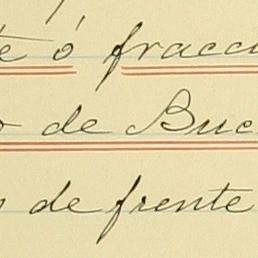 te ó fracci
o de Buc
s de frente